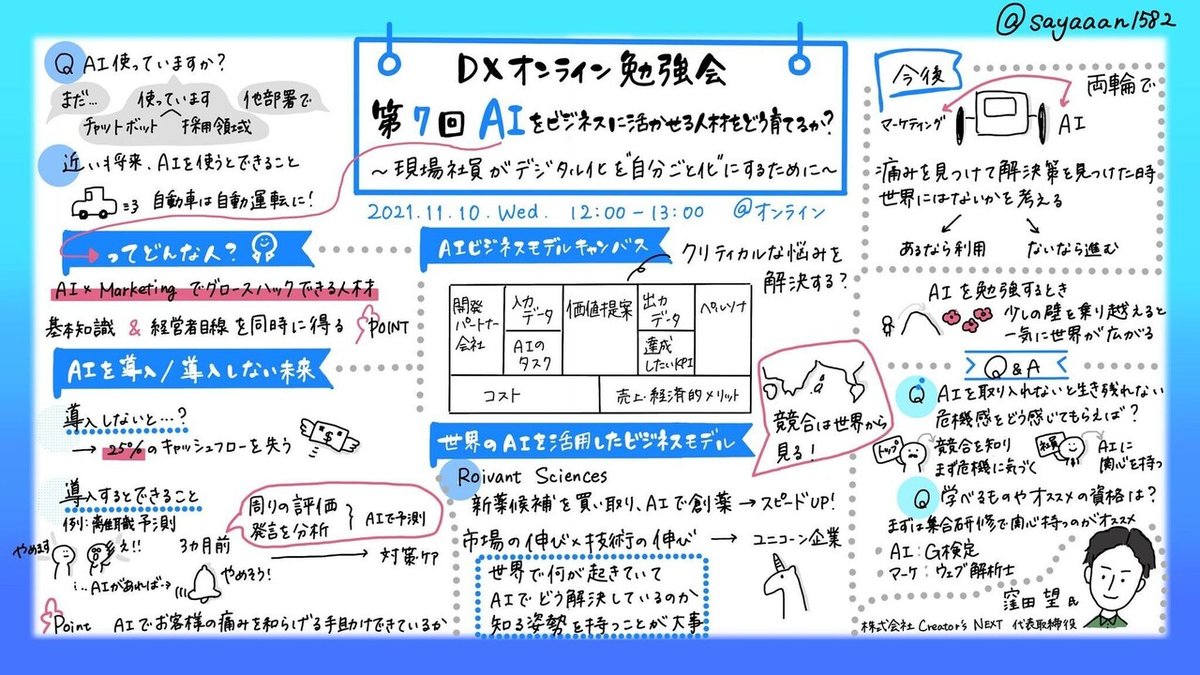 @sayaaan1582
DXオンライン勉強会
第7回 AIをビジネスに活かせる人材をどう育てるか?
〜現場社員がデジタル化を"自分ごと化"にするために〜
2021.11.10.Wed. 12:00-13:00 @オンライン
Q AI使っていますか?
まだ… 使っています 他部署で
チャットボット 採用領域
近い将来、AIを使うとできること
自動車は自動運転に!
ってどんな人?
AI×Marketingでグロースハックできる人材
基本知識 & 経営者目線を同時に得る POINT
AIを導入/導入しない未来
導入しないと…?
→ 25%のキャッシュフローを失う
$
導入するとできること
例:離職予測
やめます
え!!
3カ月前
周りの評価
発言を分析
AIで予測
対策ケア
AIがあれば→
やめろう!
Point AIでお客様の痛みを和らげる手助けできているか
AIビジネスモデルキャンバス
クリティカルな悩みを
解決する?
開発
パートナー
会社
入力
データ
AIの
タスク
価値提案
出力
データ
達成
したいKPI
ペルソナ
コスト
売上・経済的メリット
競合は世界から
見る!
世界のAIを活用したビジネスモデル
Roivant Sciences
新薬候補を買い取り、AIで創薬 → スピードUP!
市場の伸び×技術の伸び → ユニコーン企業
世界で何が起きていて
AIでどう解決しているのか
知る姿勢を持つことが大事
今後
両輪で
マーケティング
AI
痛みを見つけて解決策を見つけた時
世界にはないかを考える
あるなら利用 ないなら進む
AIを勉強するとき
少しの壁を乗り越えると
一気に世界が広がる
Q&A
Q AIを取り入れないと生き残れない
危機感をどう感じてもらえば?
トップ
競合を知り
まず危機に気づく
社員
AIに
関心を持つ
Q 学べるものやオススメの資格は?
まずは集合研修で関心持つのがオススメ
AI:G検定
マーケ:ウェブ解析士
窪田 望氏
株式会社 Creator's NEXT 代表取締役